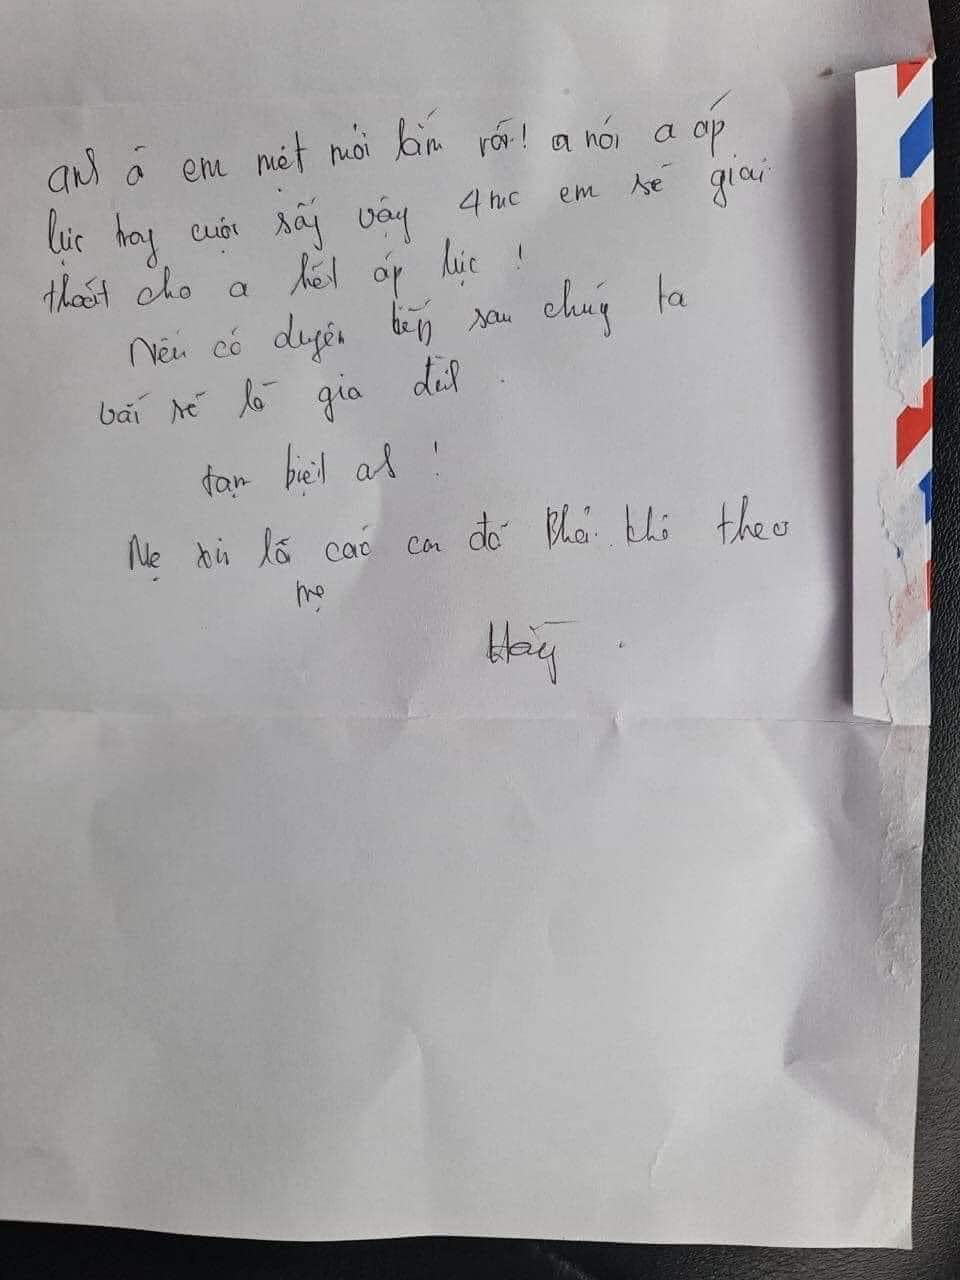 anh à em mệt mỏi lắm rồi! a nói a áp
lực trong cuộc sống vậy 4 mẹ em sẽ giải
thoát cho a hết áp lực !
Nếu có duyên kiếp sau chúng ta
vẫn sẽ là gia đình .
tạm biệt anh !
Mẹ xin lỗi các con đã phải khổ theo
mẹ
Hằng .